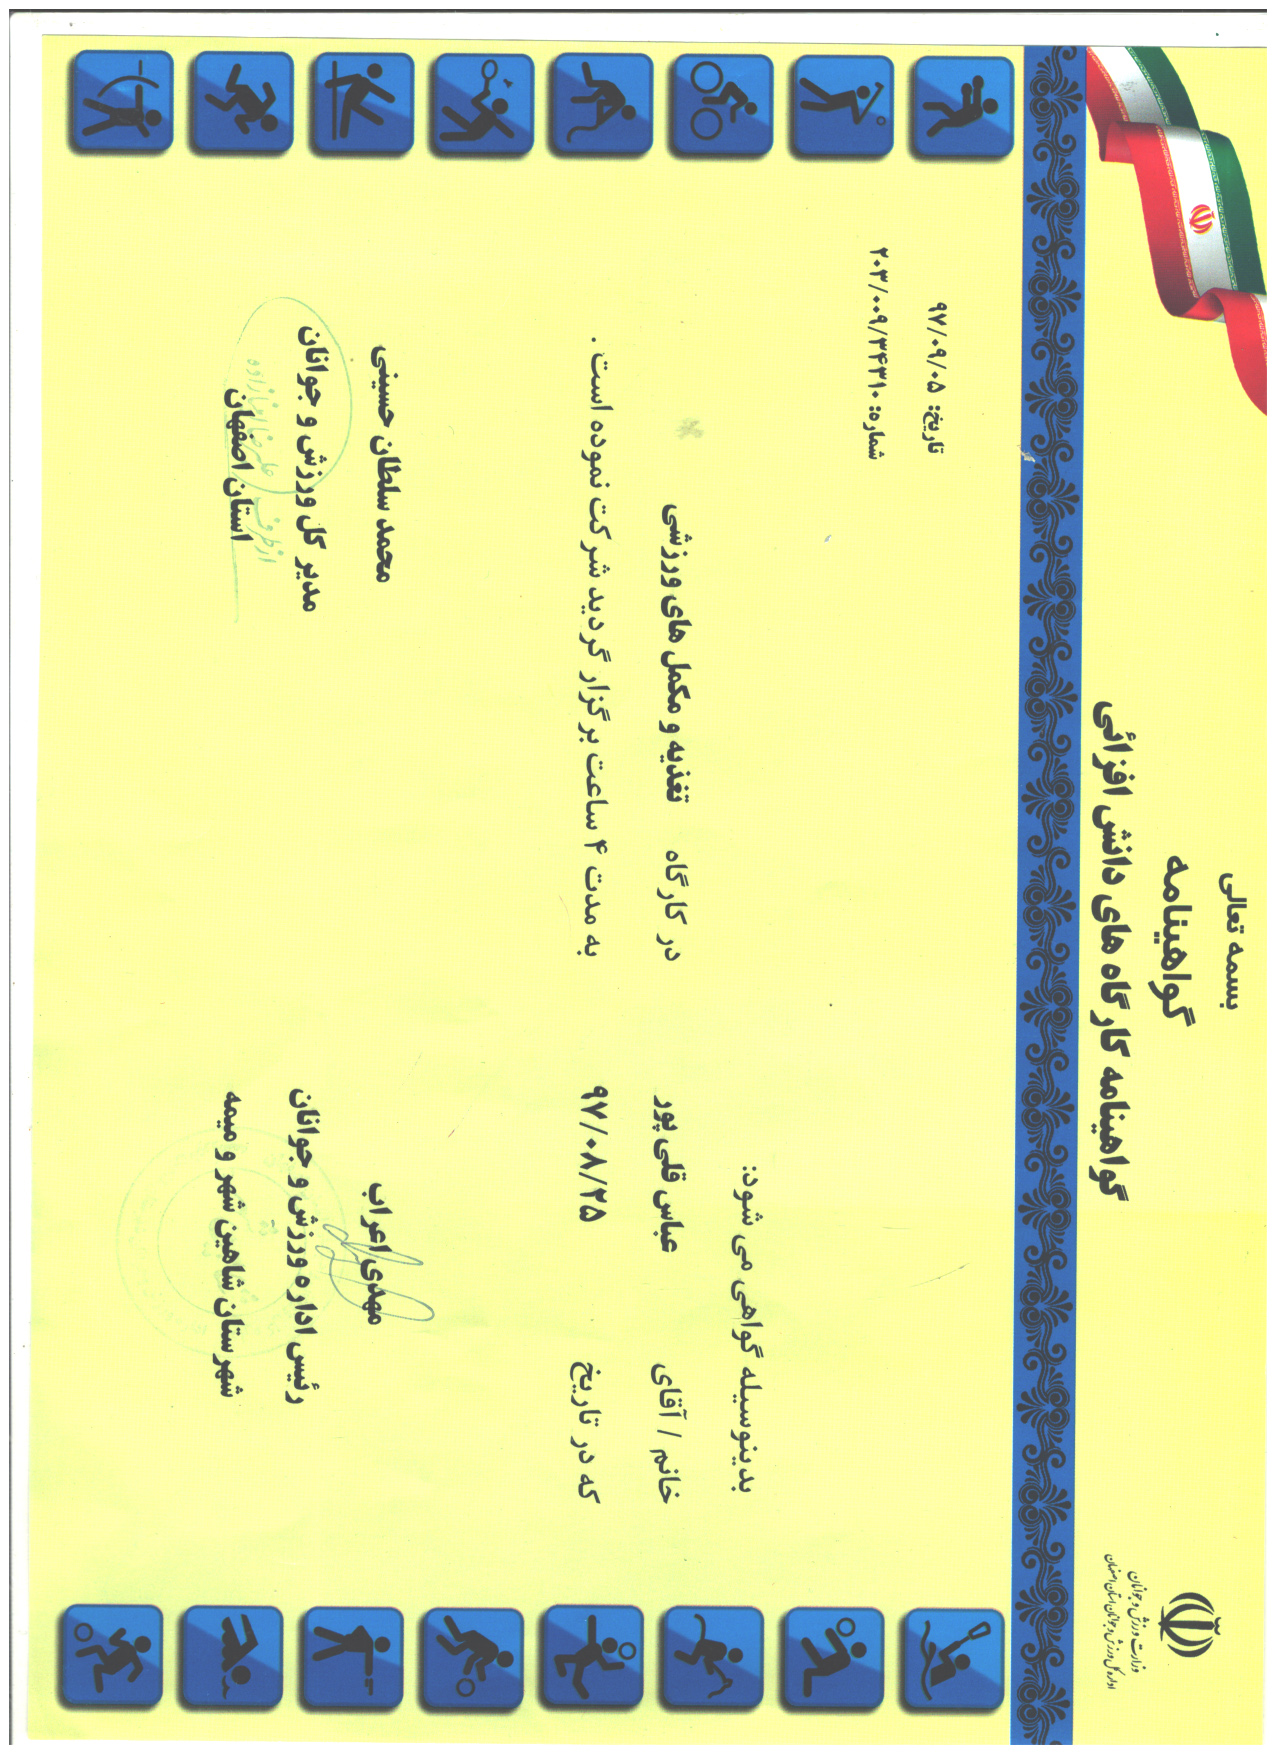 بسمه تعالی
گواهینامه
گواهینامه کارگاه های دانش افزائی
وزارت ورزش و جوانان
اداره کل ورزش و جوانان استان اصفهان
تاریخ: ۹۷/۰۹/۰۵
شماره: ۲۰۳/۰۰۹/۳۴۳۱۰
بدینوسیله گواهی می شود:
خانم / آقای عباس قلی پور در کارگاه تغذیه و مکمل های ورزشی
که در تاریخ ۹۷/۰۸/۲۵ به مدت ۴ ساعت برگزار گردید شرکت نموده است .
مهدی اعراب
رئیس اداره ورزش و جوانان
شهرستان شاهین شهر و میمه
محمد سلطان حسینی
مدیر کل ورزش و جوانان
استان اصفهان
از طرف علیرضا